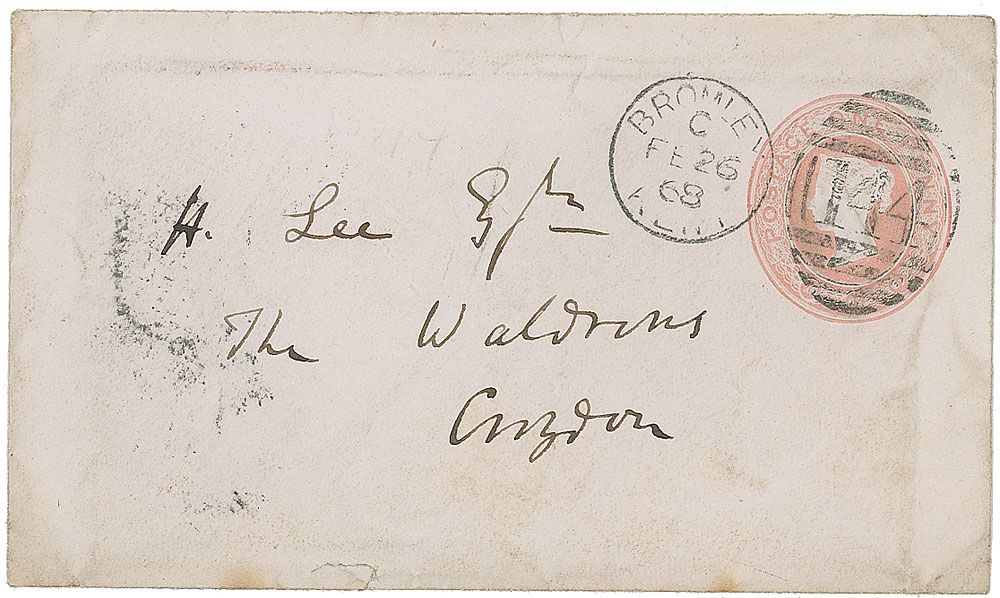 BROMLEY
C
FE 26
68
KENT
POSTAGE ONE PENNY
H. Lee Esqre
The Waldrons
Croydon